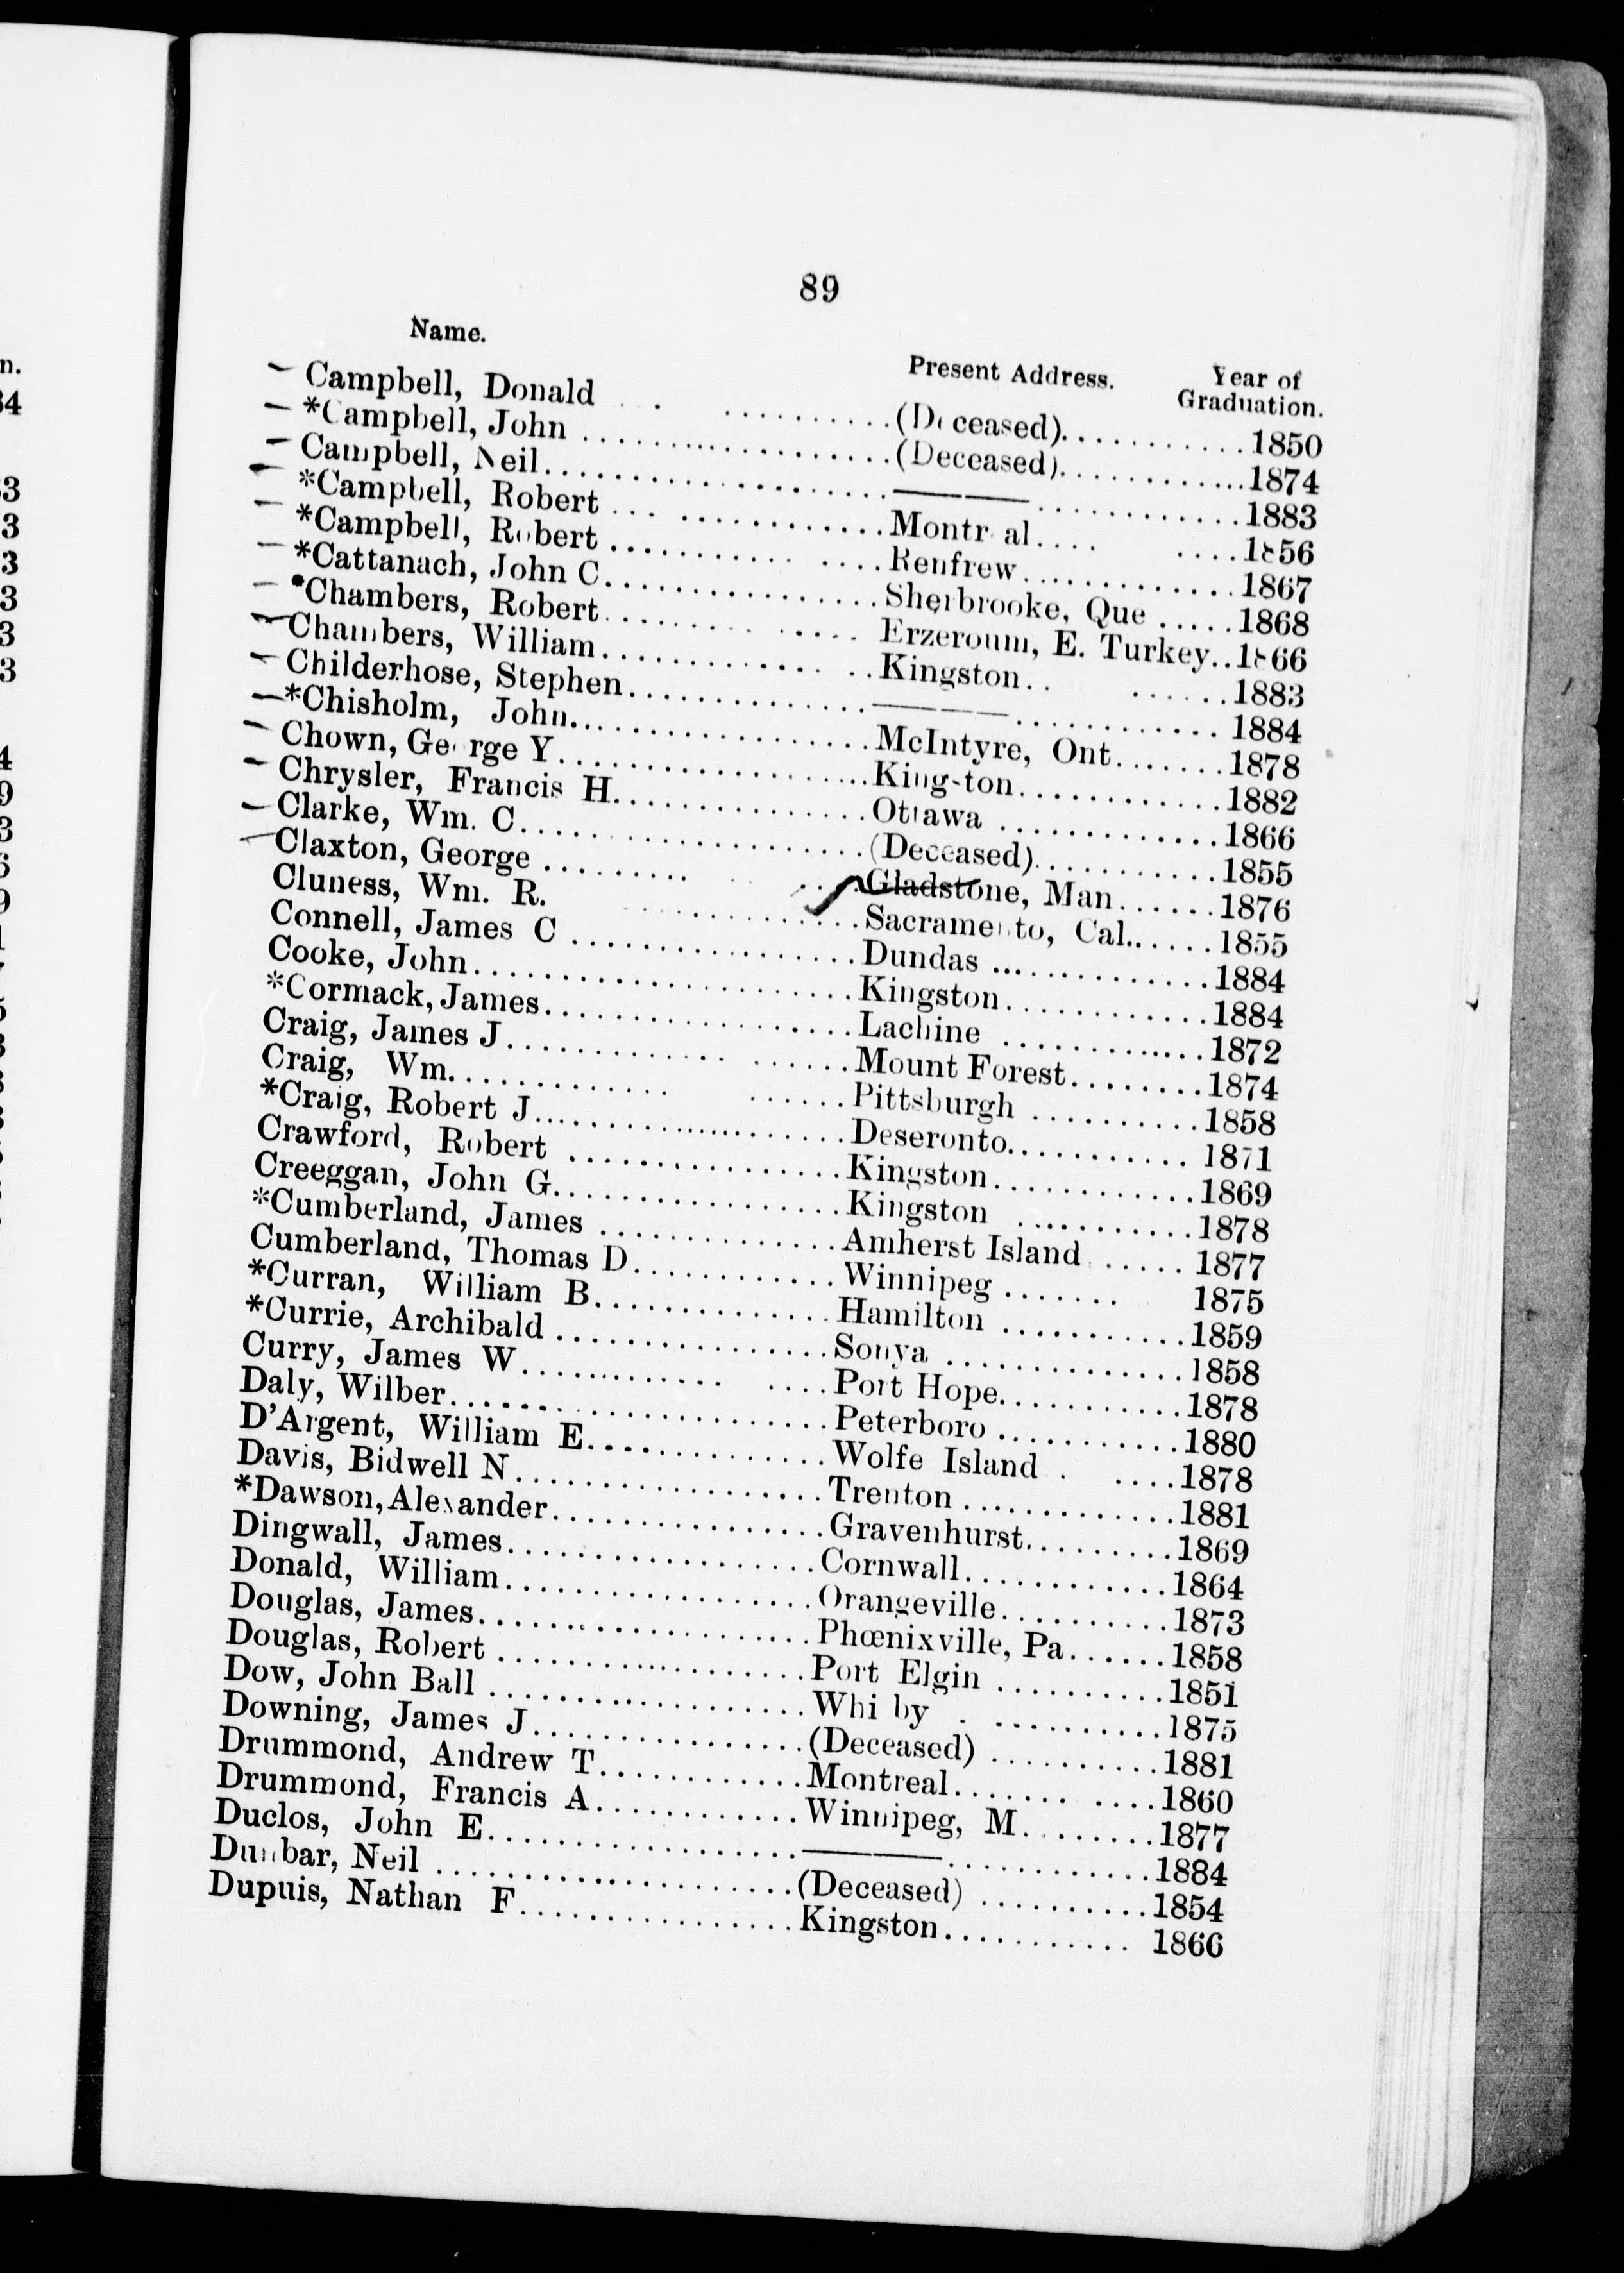 89
Name. Present Address. Year of Graduation.
Campbell, Donald ..........(Deceased)...........1850
*Campbell, John ..........(Deceased)...........1874
Campbell, Neil..........———...........1883
*Campbell, Robert ..........Montreal...........1856
*Campbell, Robert ..........Renfrew...........1867
*Cattanach, John C..........Sherbrooke, Que .....1868
*Chambers, Robert..........Erzeroum, E. Turkey..1866
Chambers, William..........Kingston...........1883
Childerhose, Stephen..........———...........1884
*Chisholm, John..........McIntyre, Ont.......1878
Chown, George Y..........Kingston...........1882
Chrysler, Francis H..........Ottawa ...........1866
Clarke, Wm. C..........(Deceased)...........1855
Claxton, George ..........Gladstone, Man......1876
Cluness, Wm. R. ..........Sacramento, Cal......1855
Connell, James C ..........Dundas ...........1884
Cooke, John..........Kingston...........1884
*Cormack, James..........Lachine ...........1872
Craig, James J..........Mount Forest........1874
Craig, Wm..........Pittsburgh ..........1858
*Craig, Robert J..........Deseronto...........1871
Crawford, Robert ..........Kingston...........1869
Creeggan, John G..........Kingston ...........1878
*Cumberland, James ..........Amherst Island ......1877
Cumberland, Thomas D..........Winnipeg ....... 1875
*Curran, William B..........Hamilton ...........1859
*Currie, Archibald ..........Sonya ...........1858
Curry, James W..........Port Hope...........1878
Daly, Wilber..........Peterboro ...........1880
D'Argent, William E..........Wolfe Island . ....1878
Davis, Bidwell N..........Trenton ...........1881
*Dawson, Alexander..........Gravenhurst.........1869
Dingwall, James..........Cornwall...........1864
Donald, William..........Orangeville..........1873
Douglas, James..........Phœnixville, Pa......1858
Douglas, Robert ..........Port Elgin ..........1851
Dow, John Ball ..........Whi by ...........1875
Downing, James J..........(Deceased) ..........1881
Drummond, Andrew T..........Montreal...........1860
Drummond, Francis A..........Winnipeg, M........1877
Duclos, John E..........———...........1884
Dunbar, Neil ..........(Deceased) ..........1854
Dupuis, Nathan F..........Kingston........... 1866